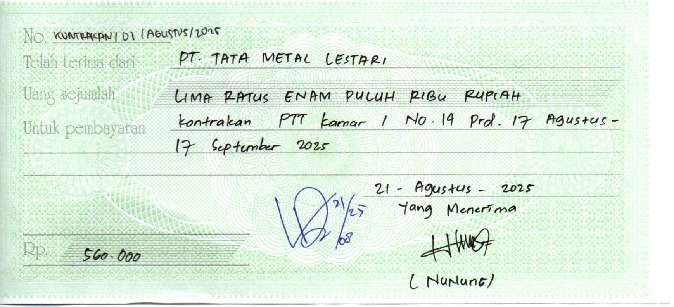 No. KONTRAKAN/01/AGUSTUS/2025
Telah terima dari PT. TATA METAL LESTARI
Uang sejumlah LIMA RATUS ENAM PULUH RIBU RUPIAH
Untuk pembayaran kontrakan PTT kamar 1 No.19 Prd. 17 Agustus -
17 September 2025
21 - Agustus - 2025
Yang Menerima
21/25
08
Rp. 560.000
(NUNUNG)